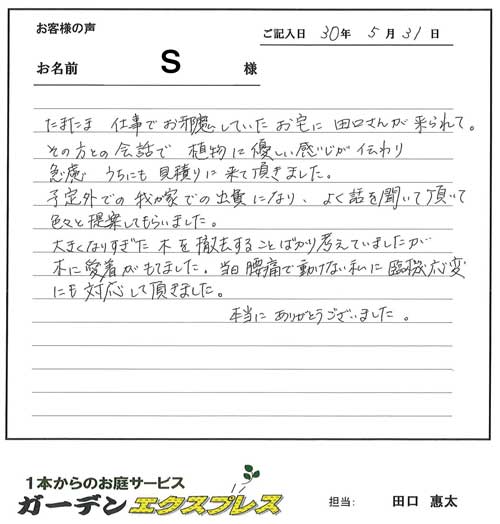 お客様の声
ご記入日 30年 5月 31日
お名前 S 様
たまたま 仕事でお邪魔していたお宅に 田口さんが来られて。
その方との会話で 植物に優しい感じが伝わり
急慮 うちにも見積りに来て頂きました。
予定外での我が家での出費になり、よく話を聞いて頂いて
色々と提案してもらいました。
大きくなりすぎた木を撤去することばかり考えていましたが
木に愛着がもてました。当日腰痛で動けない私に臨機応変
にも対応して頂きました。
本当にありがとうございました。
1本からのお庭サービス
ガーデンエクスプレス
担当: 田口 惠太